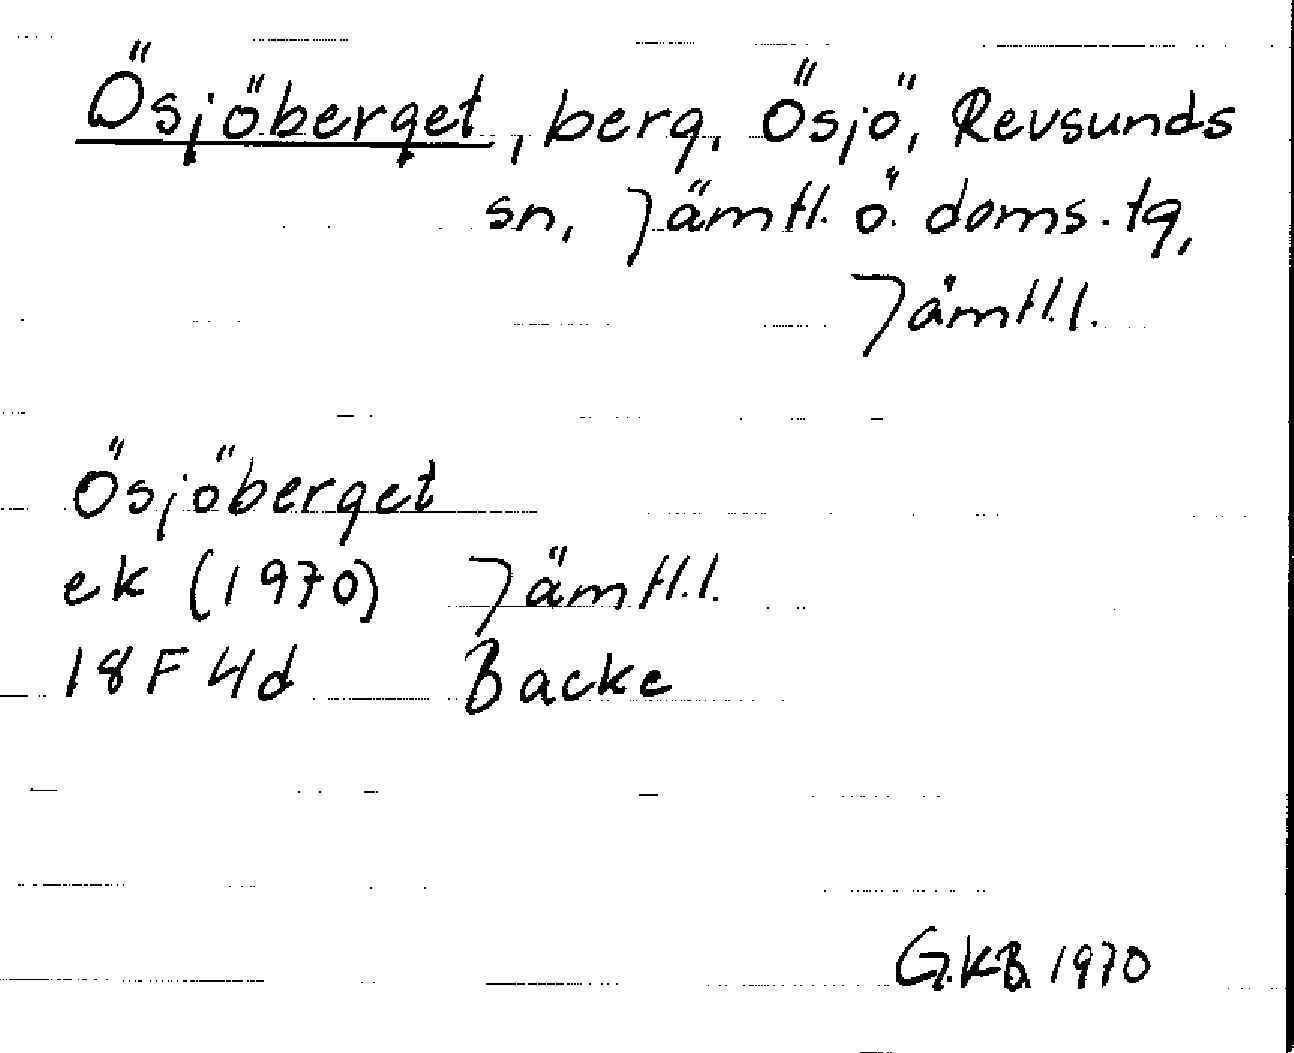 Ösjöberget, berg, Ösjö, Revsunds
sn, Jämtl. ö. doms. tg,
Jämtl.l.
Ösjöberget
ek (1970) Jämtl.l.
18F 4d Backe
G.KB. 1970